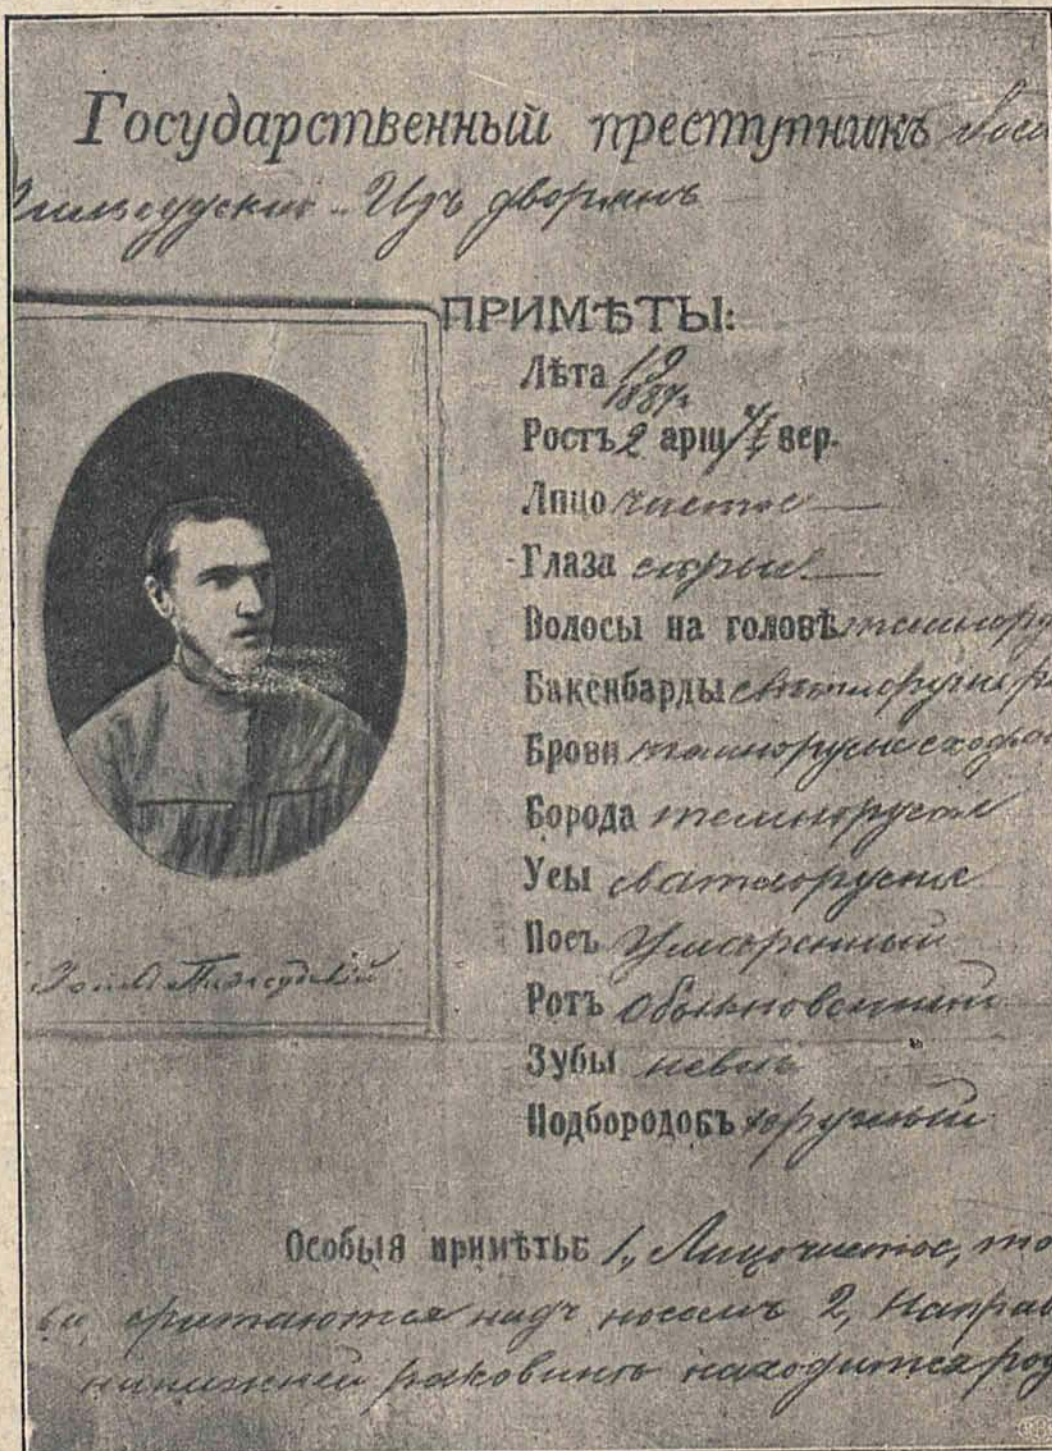 Государственный преступникъ
Пильсудский Изъ дворянъ
ПРИМѢТЫ:
Лѣта 19
1887г.
Ростъ 2 арш вер.
Лицо чистое
Глаза сѣрые
Волосы на головѣ темнору
Баксибарды светлорусые
Брови темнорусые сходя
Борода темнорусая
Усы светлорусые
Носъ Умеренный
Ротъ Обыкновенный
Зубы невсѣ
Подбородобъ круглый
Іосифъ Пилсудскій
Особыя примѣтьѣ 1, Лицо чистое, то
сростаются надъ носомъ 2, Направ
нижней раковинѣ находится род